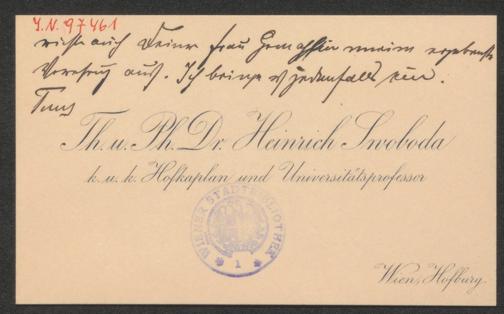 I.N. 97461
richte auch Deiner Frau Gemahlin meine ergebenste
aus. Ich bringe es jedenfalls ein.
Th. u. Ph. Dr. Heinrich Swoboda
k. u. k. Hofkaplan und Universitätsprofessor
WIENER STADTBIBLIOTHEK
1
Wien, Hofburg.